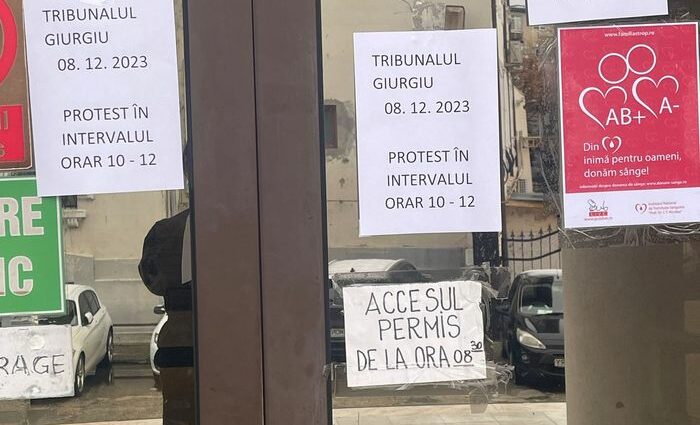 TRIBUNALUL
GIURGIU
08. 12. 2023
PROTEST ÎN
INTERVALUL
ORAR 10 - 12
RE
IC
RAGE
TRIBUNALUL
GIURGIU
08. 12. 2023
PROTEST ÎN
INTERVALUL
ORAR 10 - 12
ACCESUL
PERMIS
DE LA ORA 08 30
www.familiastrop.ro
AB+ A-
Din
inimă pentru oameni,
donăm sânge!